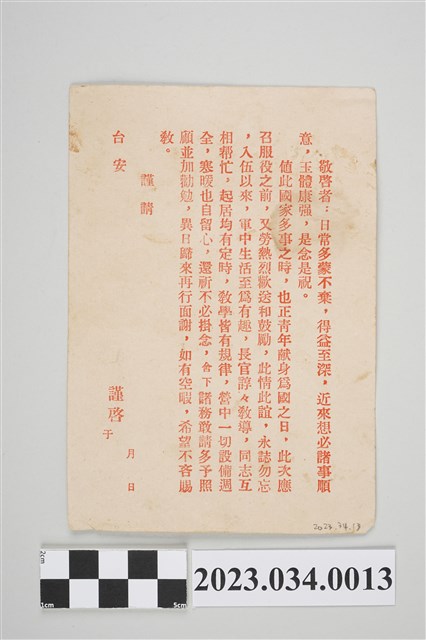 敬啓者：日常多蒙不棄，得益至深，近來想必諸事順
意，玉體康强，是念是祝。
值此國家多事之時，也正青年献身爲國之日，此次應
召服役之前，又勞熱烈歡送和鼓勵，此情此誼，永誌勿忘
，入伍以來，軍中生活至爲有趣，長官諄々敎導，同志互
相帮忙，起居均有定時，敎學皆有規律，營中一切設備週
全，寒暖也自留心，還祈不必掛念，舍下諸務敢請多予照
顧並加勸勉，異日歸來再行面謝，如有空暇，希望不吝賜
敎。
謹請
台安
謹啓
于　月　日
2023.34.13
2cm
1cm
5cm
2023.034.0013